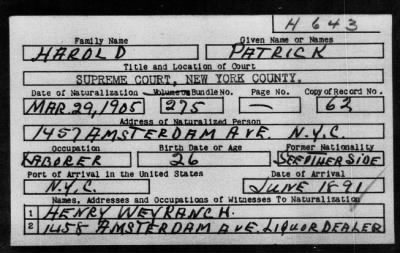 H 643
Family Name Given Name or Names
HAROLD PATRICK
Title and Location of Court
SUPREME COURT, NEW YORK COUNTY.
Date of Naturalization Volume or Bundle No. Page No. Copy of Record No.
MAR. 29, 1905 275 — 62
Address of Naturalized Person
1457 AMSTERDAM AVE. N.Y.C.
Occupation Birth Date or Age Former Nationality
LABORER 26 SEE OTHER SIDE
Port of Arrival in the United States Date of Arrival
N.Y.C. JUNE 1891
Names, Addresses and Occupations of Witnesses To Naturalization
1 HENRY WEYRANCH.
2 1458 AMSTERDAM AVE. LIQUOR DEALER